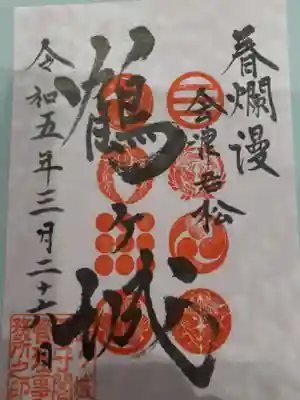 春爛漫
会津若松
鶴ヶ城
令和五年三月二十六日